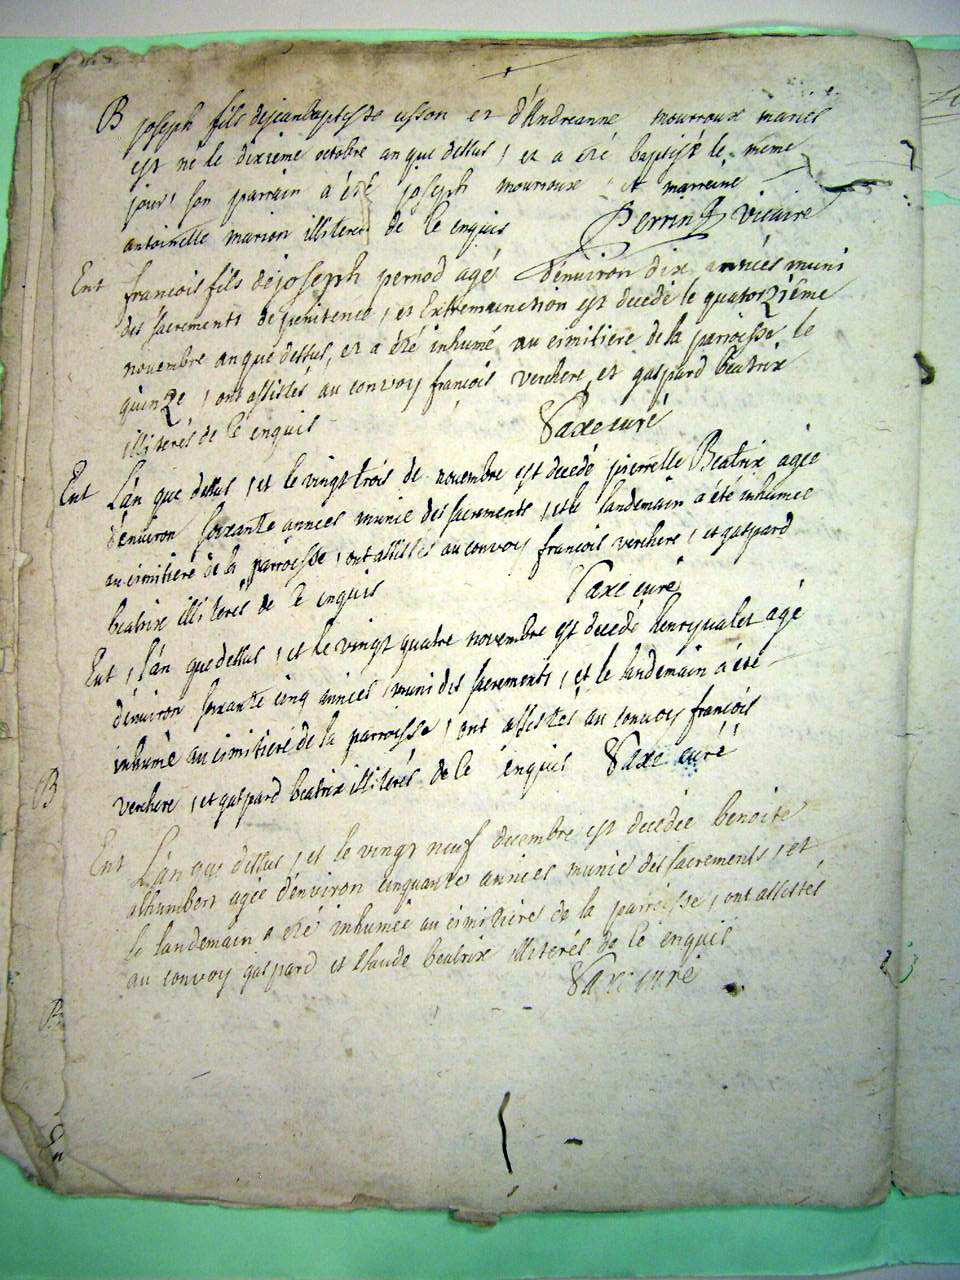 B joseph fils dejeanbaptiste usson et d'Andreanne mourroux mariés
est né le dixieme octobre an que dessus, et a été baptisé le meme
jour, son parrain a été joseph mourroux, et marreine
antoinette marion illiterés de ce enquis Perrin vicaire
Ent francois fils de joseph pernod agé d'environ dix années muni
des sacrements de penitence, et Extremeunction est decedé le quatorzième
novembre an que dessus, et a été inhumé au cimitiere de la parroisse le
quinze, ont assistés au convoy françois verchere, et gaspard beatrix
illiterés de ce enquis Saxe curé
Ent L'an que dessus, et le vingt trois de novembre est decedé pierrette Beatrix agée
d'environ soixante années munie des sacrements, et le landemain a été inhumee
au cimitiere de la parroisse, ont assistés au convoy francois verchere, et gaspard
beatrix illiterés de ce enquis Saxe curé
Ent, l'an que dessus, et le vingt quatre novembre est decedé henry valet agé
d'environ soixante cinq années, muni des sacrements, et le landemain a été
inhumé au cimitiere de la parroisse, ont assistés au convoy françois
verchere, et gaspard beatrix illiterés de ce enquis Saxe curé
B
Ent L'an que dessus, et le vingt neuf decembre est decedée benoite
alhumbert agée d'environ cinquante années munie des sacrements, et
le landemain a été inhumée au cimitiere de la parroisse, ont assistés
au convoy gaspard et claude beatrix illiterés de ce enquis
Saxe curé